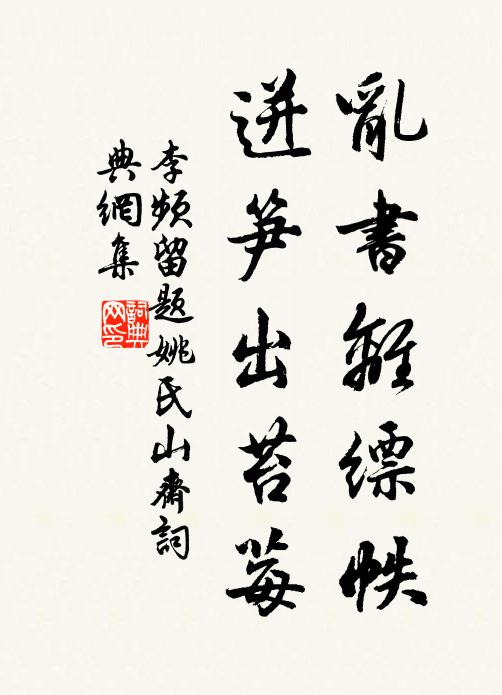 亂書離縹帙
迸笋出苔莓
李頻留題姚氏山齋詞
典網集
詞典網印